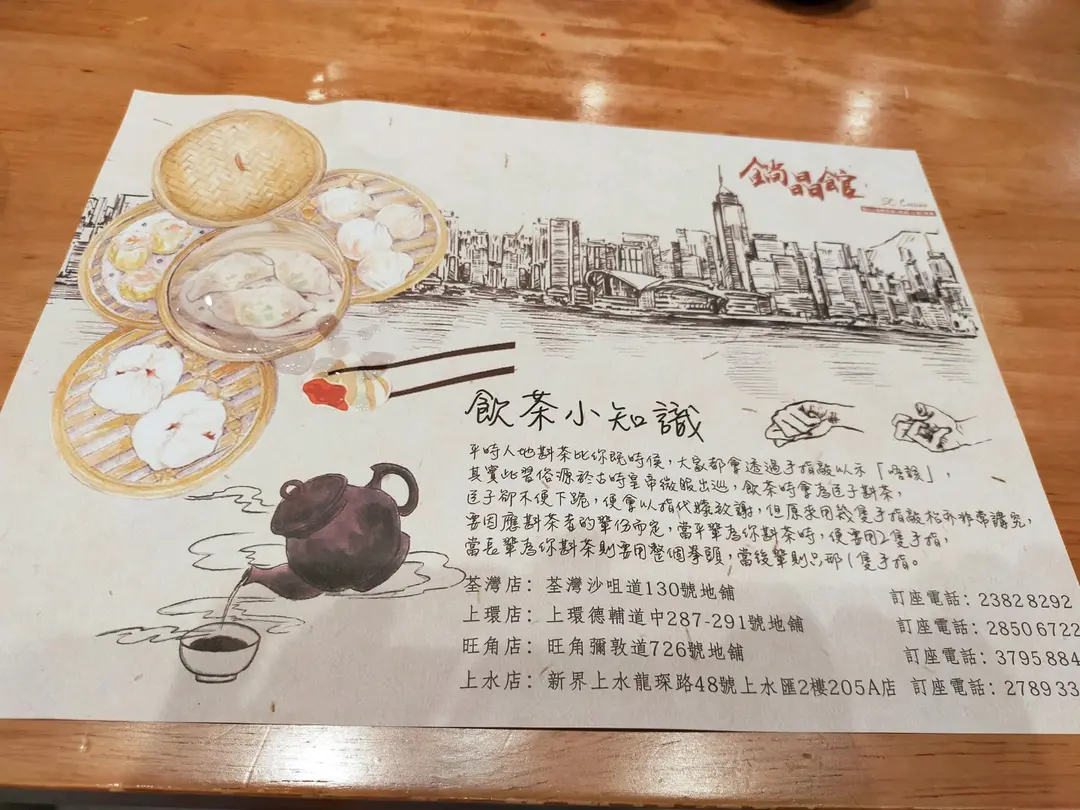 鍋晶館
飲茶小知識
平時人地斟茶比你既時侯，大家都會透過手指敲以示「唔該」，
其實此習俗源於古時皇帝微服出巡，飲茶時會為臣子斟茶，
臣子卻不便下跪，便會以指代膝放謝，但原來用幾隻手指敲枱亦非常講究，
要因應斟茶者的輩份而定，當平輩為你斟茶時，便要用2隻手指，
當長輩為你斟茶則要用整個拳頭，當後輩則只那1隻手指。
荃灣店：荃灣沙咀道130號地舖 訂座電話：23828292
上環店：上環德輔道中287-291號地舖 訂座電話：28506722
旺角店：旺角彌敦道726號地舖 訂座電話：3795884
上水店：新界上水龍琛路48號上水匯2樓205A店 訂座電話：278933